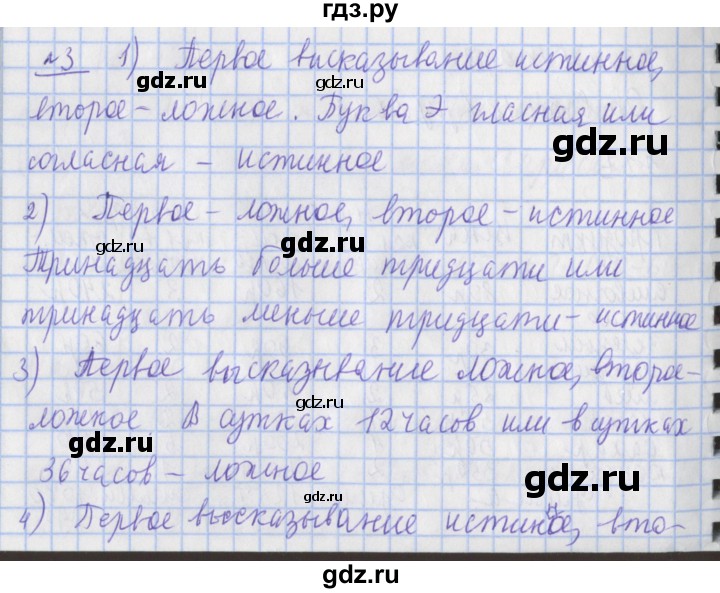 гдз.ру
№3 1) Первое высказывание истинное,
второе – ложное. Буква Э гласная или
согласная – истинное
2) Первое – ложное, второе – истинное
Тринадцать больше тридцати или
тринадцать меньше тридцати – истинное
3) Первое высказывание ложное, второе –
ложное В сутках 12 часов или в сутках
36 часов – ложное
4) Первое высказывание истинное, вто-
gdz.ru
gdz.ru
gdz.ru
gdz.ru
gdz.ru
gdz.ru
gdz.ru
gdz.ru
gdz.ru
gdz.ru
gdz.ru
gdz.ru
gdz.ru
gdz.ru